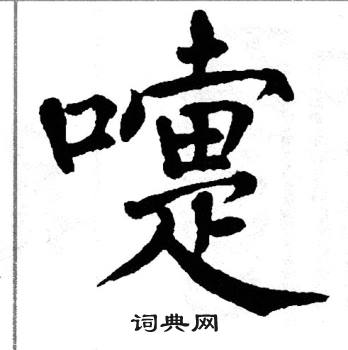 嚏
词典网